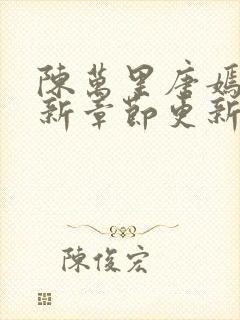 陳萬里唐嫣
新章節更新
陳俊宏